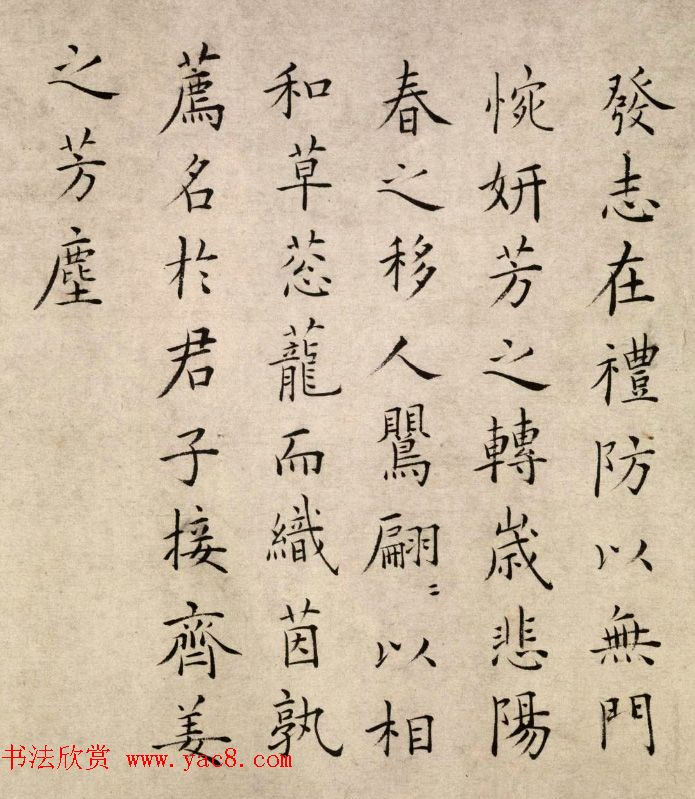 發志在禮防以無門
惋妍芳之轉歲悲陽
春之移人鷪翩〻以相
和草蒽蘢而織茵孰
薦名於君子接齊姜
之芳塵
书法欣赏 www.yac8.com